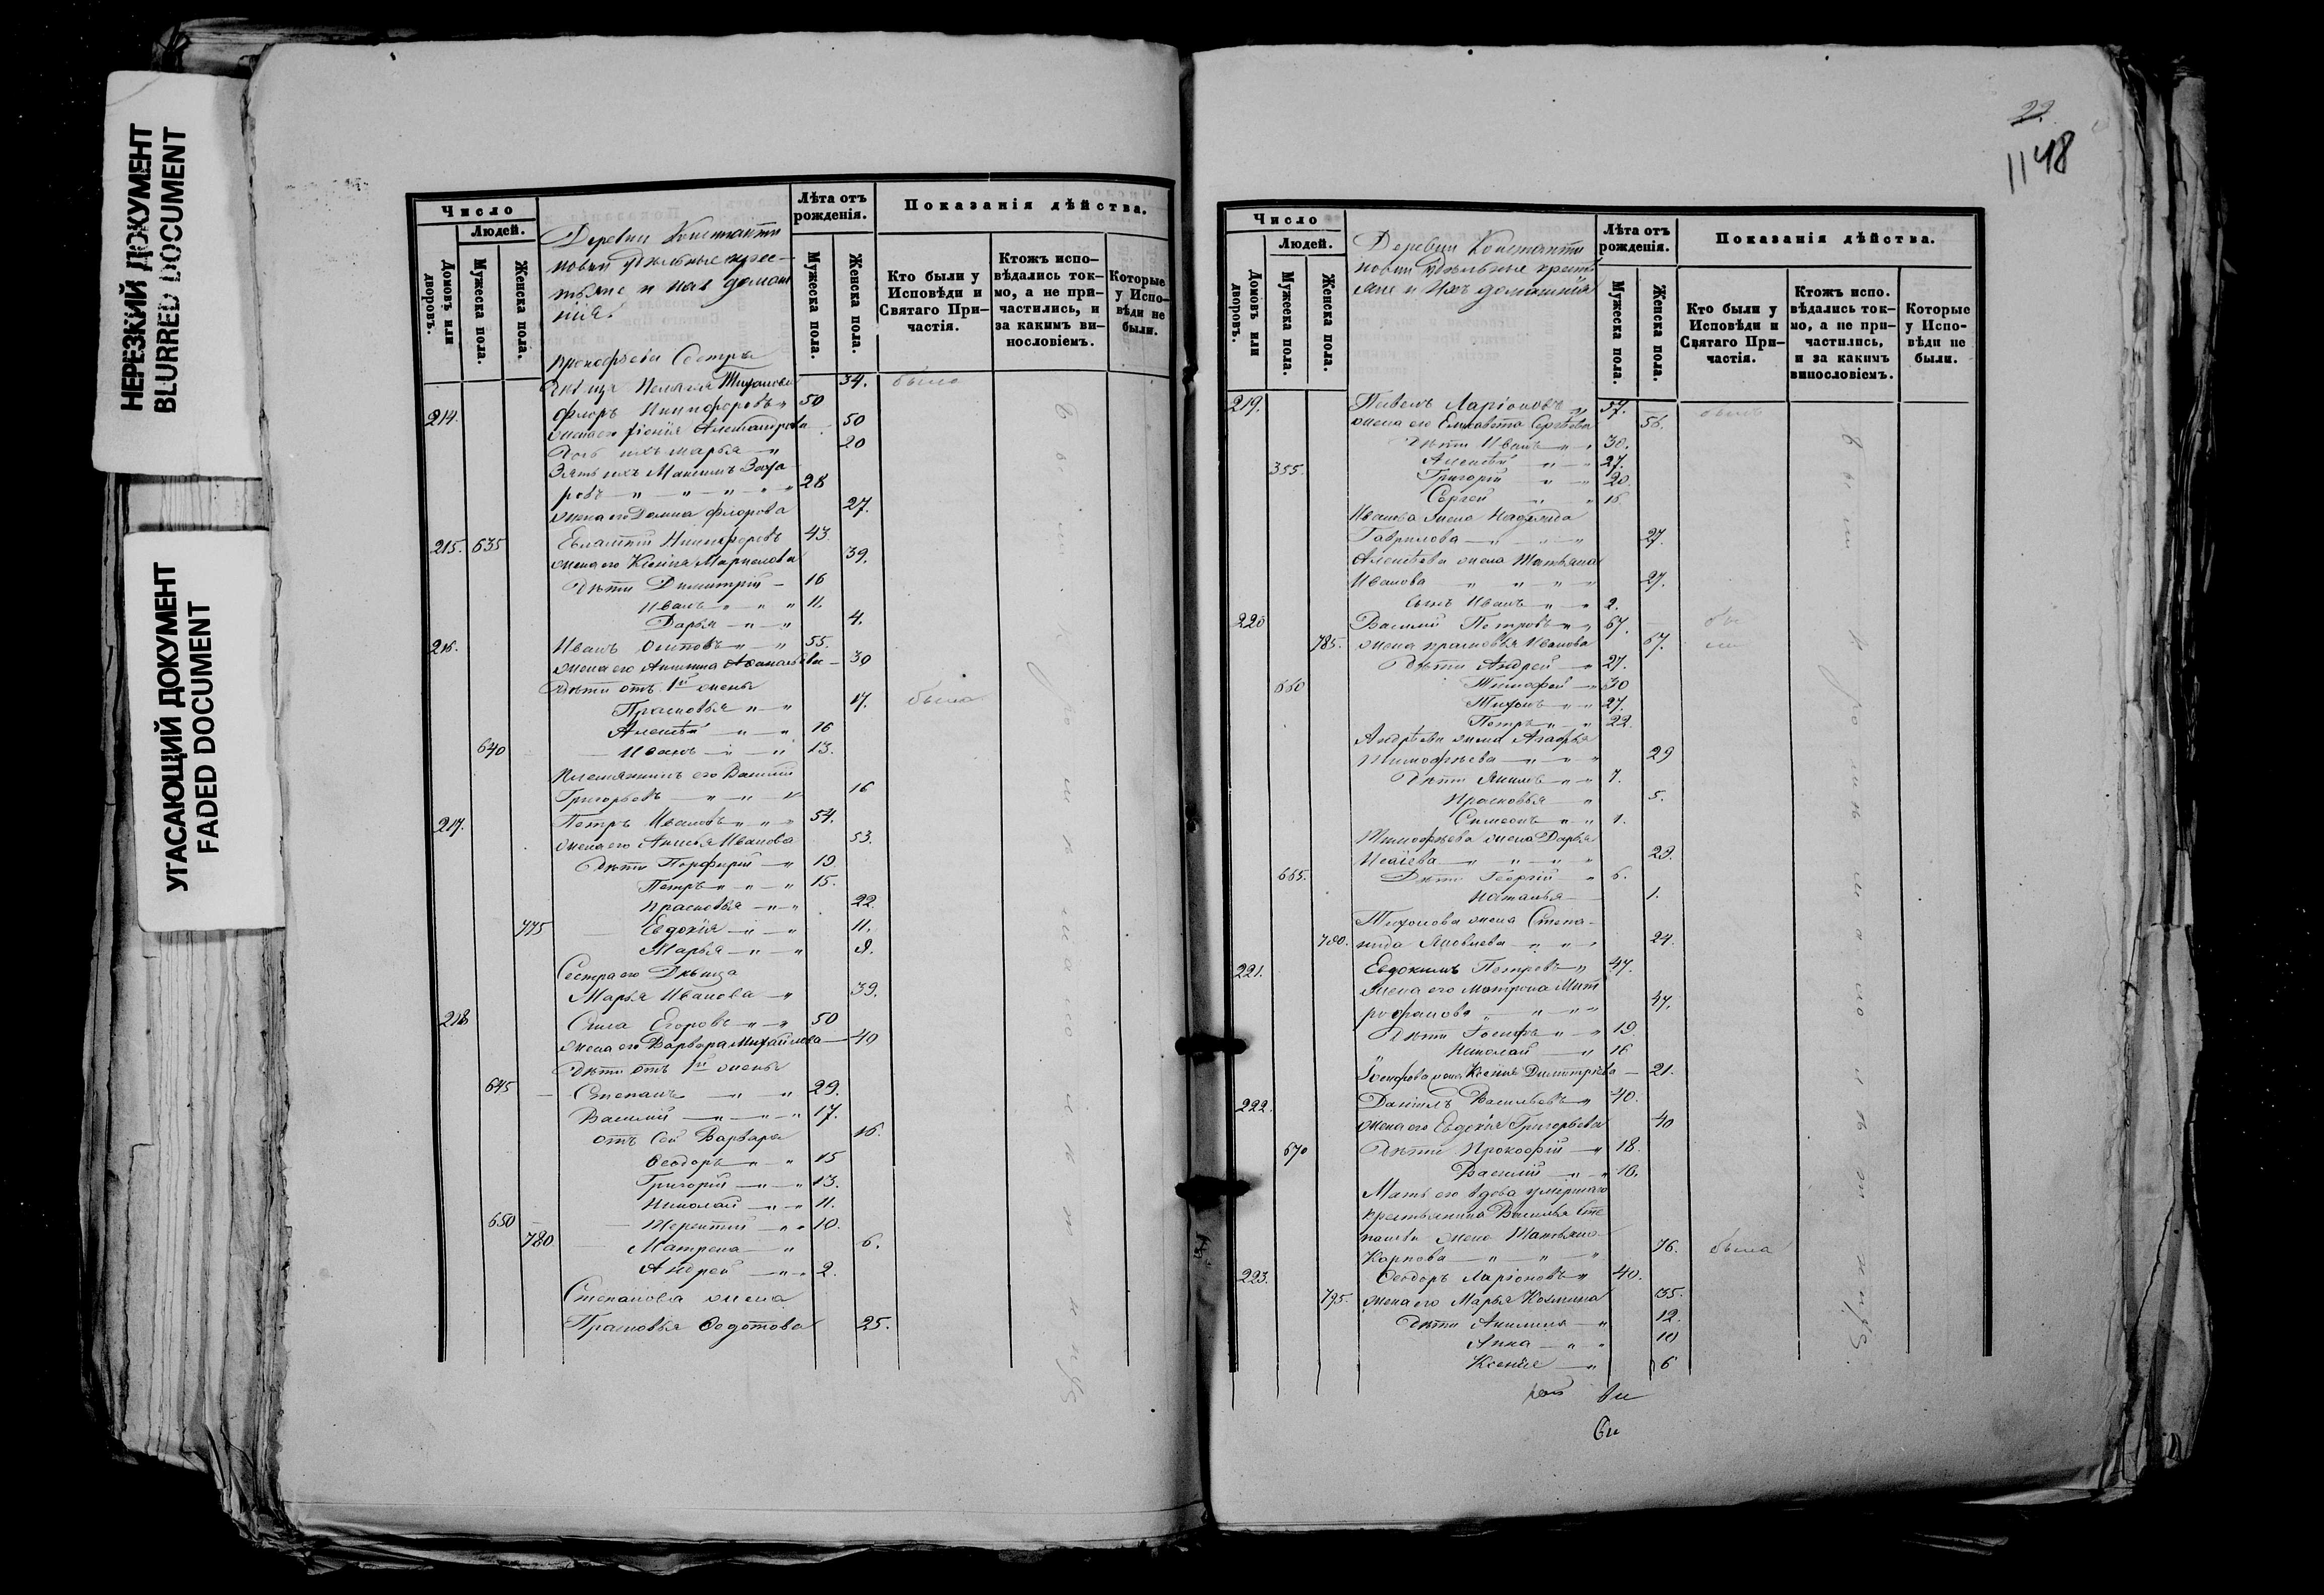 НЕРЕЗКИЙ ДОКУМЕНТ
BLURRED DOCUMENT
УГАСАЮЩИЙ ДОКУМЕНТ
FADED DOCUMENT
Число
Людей.
Домовъ или дворовъ.
Мужеска пола.
Женска пола.
Деревни Константи
новки удѣльные крес-
тьяне и ихъ домаш
нія.
Лѣта отъ рожденія.
Мужеска пола.
Женска пола.
Показанія дѣйства.
Кто были у Исповѣди и Святаго При-частія.
Ктожъ испо-вѣдались ток-мо, а не при-частились, и за какимъ ви-нословіемъ.
Которые у Испо-вѣди не были.
Прокофьева Сестра
дѣвица Пелагія Тихонова 34. была
214. Флоръ Никифоровъ " 50
жена его Александрова 50
Дочь ихъ Марья " 20
Зять ихъ Максимъ Заха
ровъ " " " " 28
жена его Домна Флорова 27.
215. 635 Евлампій Никифоровъ 43.
жена его Ксенія 39.
дѣти Димитрій 16
Иванъ " " 11.
Дарья " " 4.
216. Иванъ Осиповъ " " 55.
жена его Акилина 30
дѣти отъ 1й жены
Прасковья " " 17. была
Алексѣй " " 16
640 Иванъ " " 13.
Племянникъ его Василій
Григорьевъ " " " 16
217. Петръ Ивановъ " " 54.
жена его Анисья Иванова 53.
дѣти Порфирій " 19
Петръ " " 15.
Прасковья " " 22.
775 Евдокія " " 11.
Марья " " 9.
Сестра его Дѣвица
Марья Иванова " 39.
218 Сила Егоровъ " " 50
жена его Варвара Михайлова 40
дѣти отъ 1й жены
645 Степанъ " " 29.
Василій " " 17.
отъ сей Варвары 16.
Ѳеодоръ " " 15
Григорій " " 13.
Николай " " 11.
650 Терентій " " 10.
780 Матрена " 6.
Андрей " " 2.
Степанова жена
Прасковья Ѳедотова 25.
22.
1148
Число
Людей.
Домовъ или дворовъ.
Мужеска пола.
Женска пола.
Деревни Константи
новки удѣльные кресть
яне и ихъ домашнія
Лѣта отъ рожденія.
Мужеска пола.
Женска пола.
Показанія дѣйства.
Кто были у Исповѣди и Святаго При-частія.
Ктожъ испо-вѣдались ток-мо, а не при-частились, и за какимъ винословіемъ.
Которые у Испо-вѣди не были.
219. Павелъ Ларіоновъ " 57. былъ
жена его Елизавета Сергѣева 56.
дѣти Иванъ " " 30.
355. Алексѣй " " 27.
Григорій " " 20.
Сергей " " 16
Иванова жена Надежда
Гаврилова " " " 27.
Алексѣева жена Татьяна
Иванова " " " " 27.
сынъ Иванъ " " 2.
220 Василій Петровъ " " 67. бы
785. жена Прасковья Иванова 67. ли
дѣти Андрей " 27.
660 Тимофей " 30
Тихонъ " " 27.
Петръ " " 22.
Андрѣева жена Агафья
Тимофѣева " " " 29
дѣти Якимъ " " 7.
Прасковья " 5.
Симеонъ " " 1.
Тимофѣева жена Дарья
Исаіева " " " " 29.
665. Дѣти Георгій " 6.
Наталья 1.
Тихонова жена Степа-
790. нида Яковлева " " " 24.
221. Евдокимъ Петровъ " 47.
жена его Матрона Мит
рофанова " " " 47.
дѣти Іосифъ " " 19.
Николай " 16
Іосифова жена Ксенія Димитріева 21.
222. Даніилъ Васильевъ " 40.
жена его Евдокія Григорьева 40
670 дѣти Прокофій " 18.
Василій " " 10.
Мать его вдова умершаго
крестьянина Василья Сте
панова жена Татьяна
Карпова " " " 76. была
223. Ѳеодоръ Ларіоновъ " 40.
795. жена его Марья Козмина 35.
дѣти Акилина " 12.
Анна " " 10
Ксенія " 6